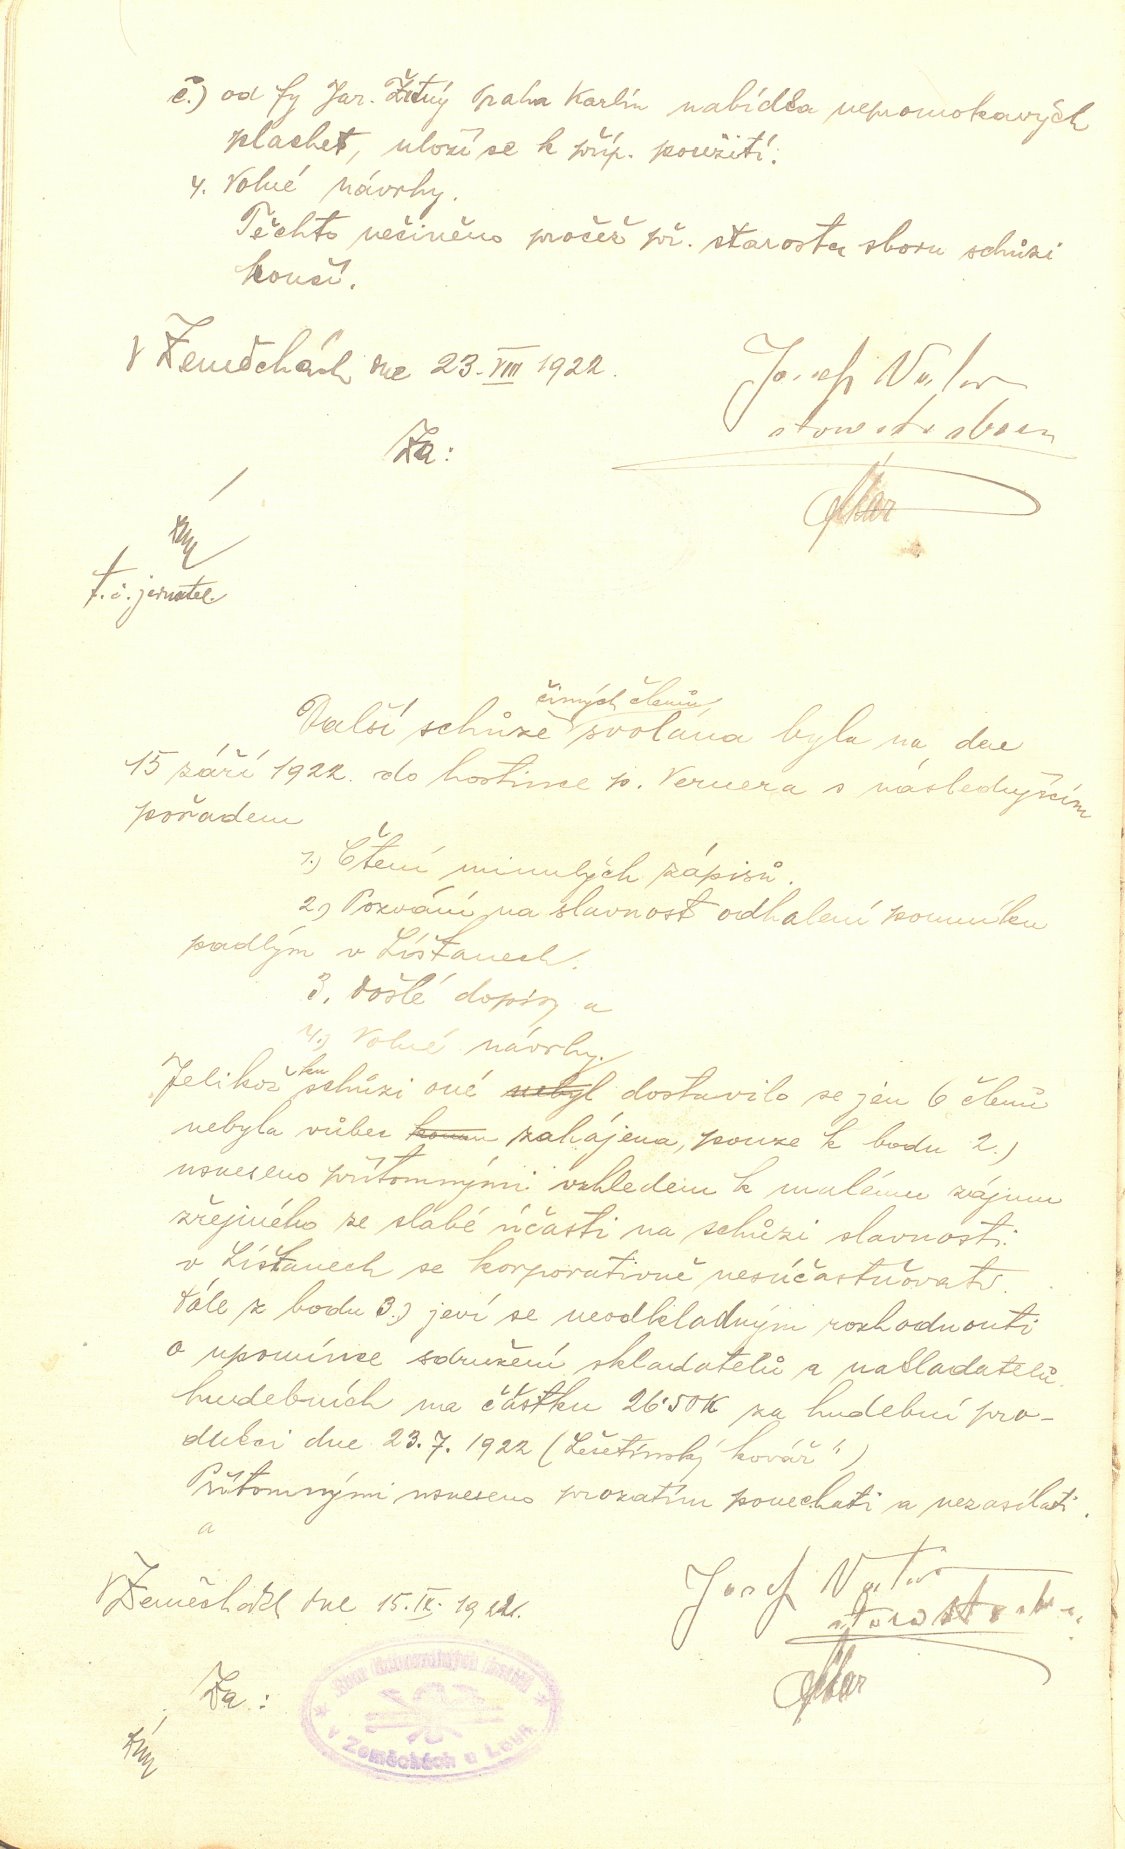 č.) od fy Jar. Žitný Praha Karlín nabídka nepromokavých
plachet, uloží se k příp. použití.
4. Volné návrhy.
Těchto nečiněno pročež př. starosta sboru schůzi
končí.
V Zeměchách dne 23. VIII 1922.
Josef
starosta sboru
Za:
t. č. jednatel.
činných členů
Další schůze svolána byla na den
15 září 1922. do hostince p. Vernera s následujícím
pořadem
1.) Čtení minulých zápisů.
2.) Pozvání na slavnost odhalení pomníku
padlým v Líšťanech.
3. Došlé dopisy a
4.) Volné návrhy.
Jelikož ku schůzi oné nebyl dostavilo se jen 6 členů
nebyla vůbec zahájena, pouze k bodu 2.)
usneseno přítomnými vzhledem k malému zájmu
zřejmého ze slabé účasti na schůzi slavnosti
v Líšťanech se korporativně nesúčastňovati.
Dále z bodu 3.) jeví se neodkladným rozhodnouti
o upomínce sdružení skladatelů a nakladatelů
hudebních na částku 26·50 K za hudební pro-
dukci dne 23. 7. 1922 (Lešetínský kovář")
Přítomnými usneseno prozatím ponechati a nezasílati.
a
V Zeměchách dne 15. IX. 1922.
Josef
starosta
Za:
Sbor dobrovolných hasičů
v Zeměchách u Loun